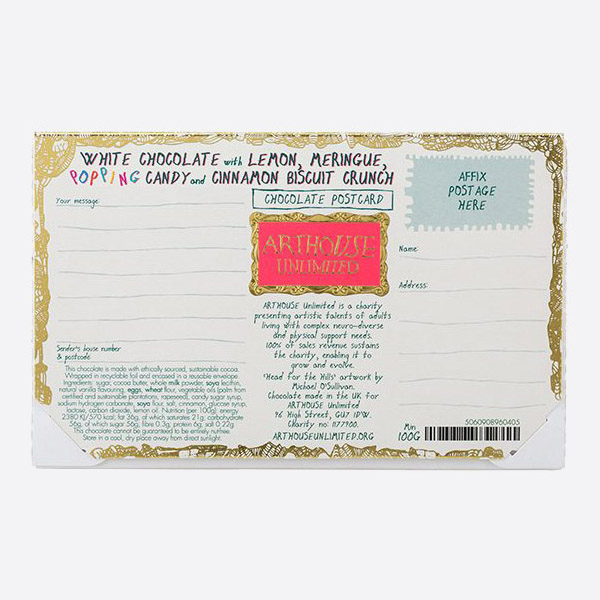 WHITE CHOCOLATE with LEMON, MERINGUE,
POPPING CANDY and CINNAMON BISCUIT CRUNCH
CHOCOLATE POSTCARD
AFFIX
POSTAGE
HERE
Your message:
ARTHOUSE
UNLIMITED
Name:
Address:
Sender's house number
& postcode
This chocolate is made with ethically sourced, sustainable cocoa.
Wrapped in recycled foil and encased in a reusable envelope.
Ingredients: sugar, cocoa butter, whole milk powder, soya lecithin,
natural vanilla flavouring, eggs, wheat flour, vegetable oils (palm from
certified and sustainable plantations, rapeseed), candy sugar syrup,
sodium hydrogen carbonate, soya flour, salt, cinnamon, glucose syrup,
lactose, carbon dioxide, lemon oil. Nutrition (per 100g): energy
2380 KJ/570 kcal; fat 36g, of which saturates 21g; carbohydrate
56g, of which sugar 56g; fibre 0.3g; protein 6g; salt 0.22g
This chocolate cannot be guaranteed to be entirely nut-free.
Store in a cool, dry place away from direct sunlight.
ARTHOUSE Unlimited is a charity
presenting artistic talents of adults
living with complex neuro-diverse
and physical support needs.
100% of sales revenue sustains
the charity, enabling it to
grow and evolve.
'Head for the Hills' artwork by
Michael O'Sullivan.
Chocolate made in the UK for
ARTHOUSE Unlimited
96 High Street, GU7 1DW.
Charity no: 1177700.
ARTHOUSEUNLIMITED.ORG
Min
100G
5060908960405